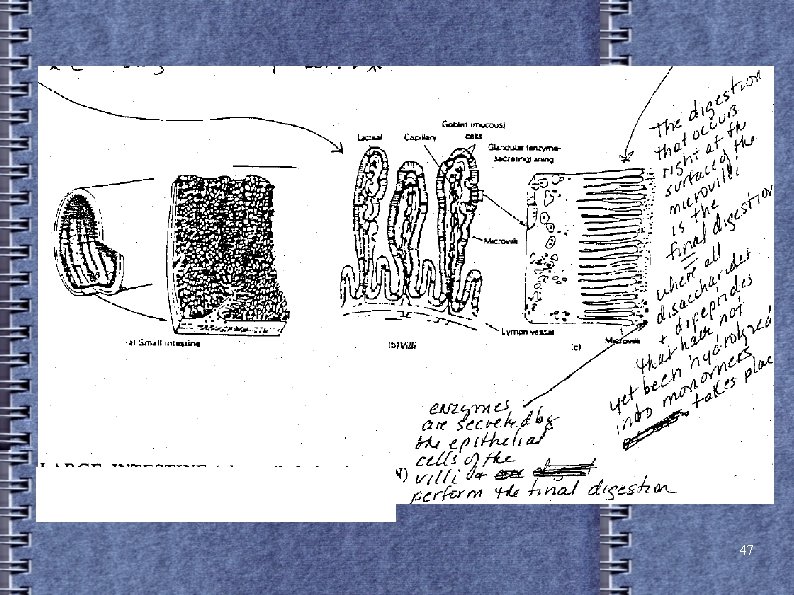 Goblet (mucous)
cells
Lacteal
Capillary
Glandular (enzyme-
secreting) lining
Microvilli
Lymph vessel
(a) Small intestine
(b) Villi
(c)
Microvilli
The digestion
that occurs
right at the
surface of the
microvilli
is the
final digestion
where all
disaccharides
+ dipeptides
that have not
yet been hydrolyzed
into monomers
takes place
enzymes
are secreted by
the epithelial
cells of the
villi
perform the final digestion
LARGE INTESTINE
47